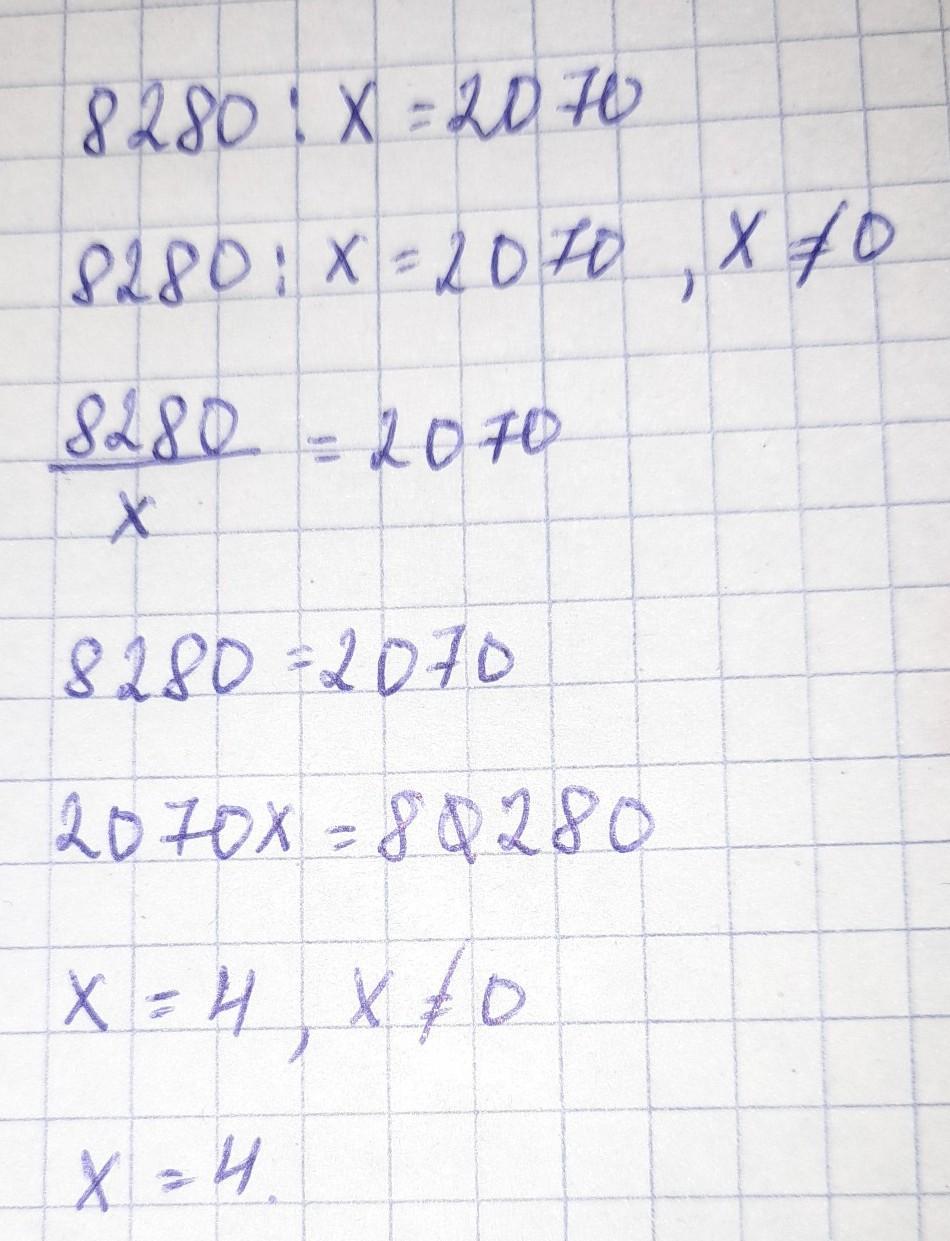 8280 : x = 2070
8280 : x = 2070 , x ≠ 0
8280
x
= 2070
8280 = 2070
2070x = 80280
x = 4 , x ≠ 0
x = 4.